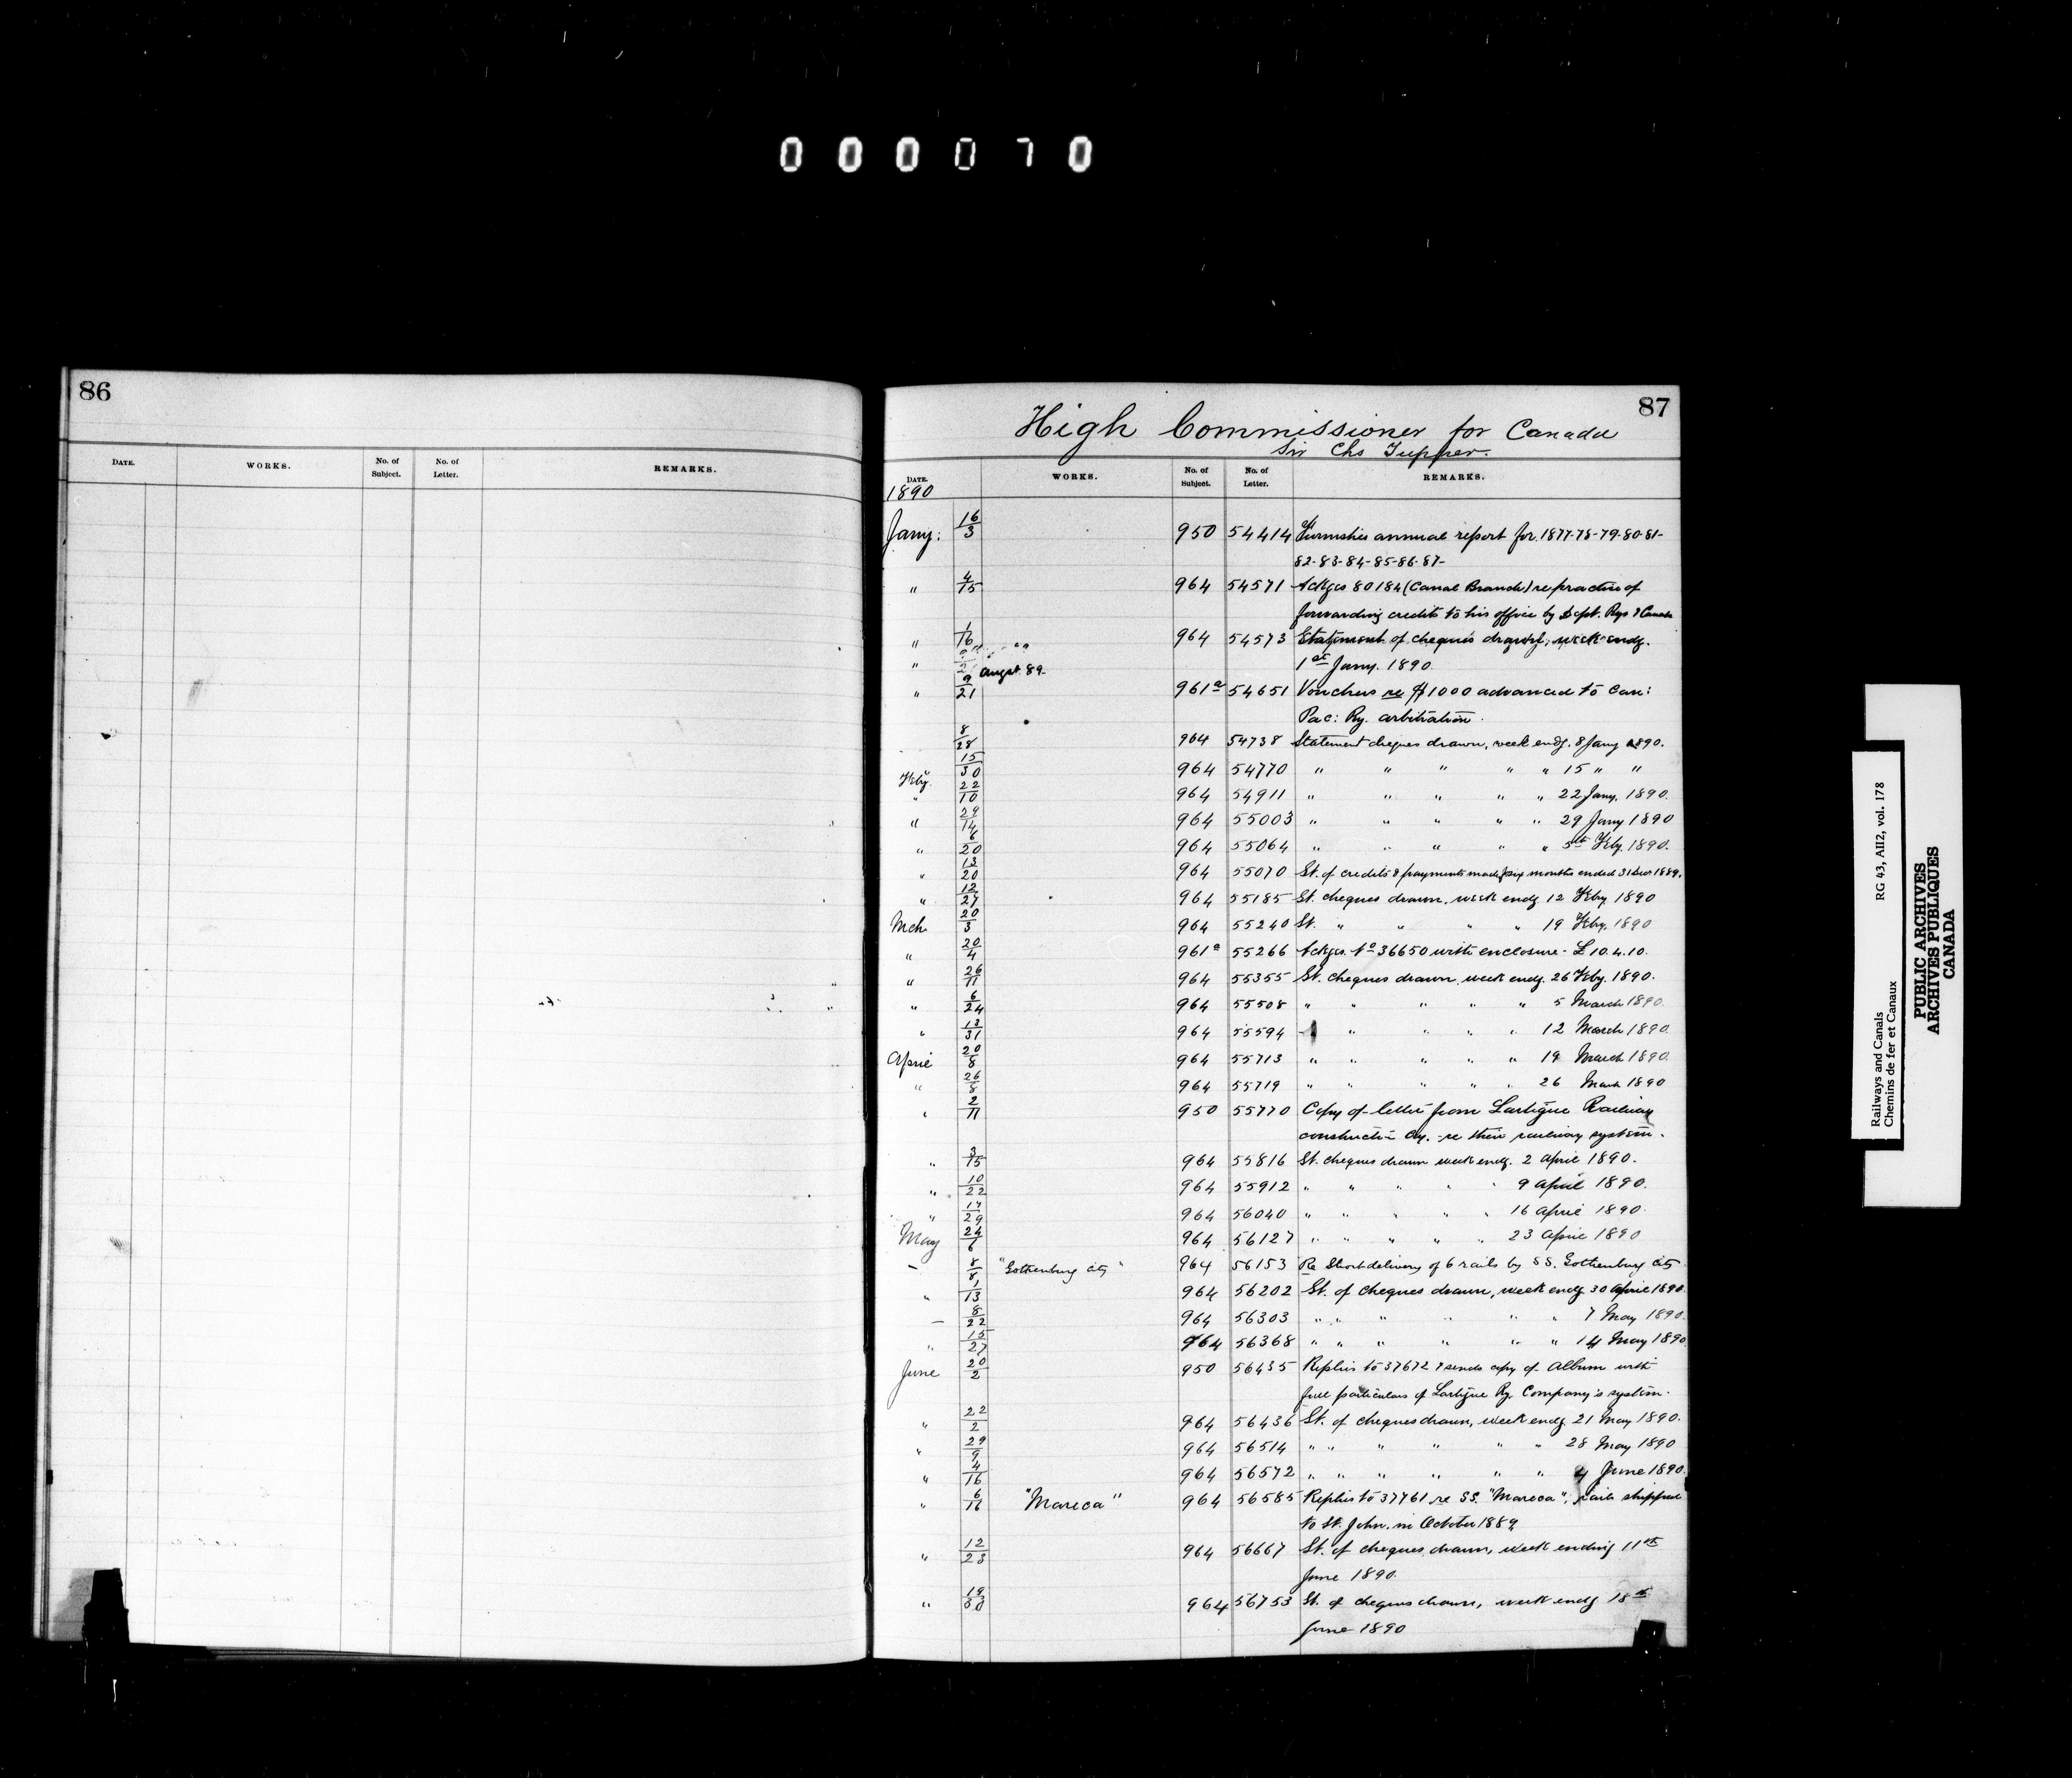 000070
86
DATE. WORKS. No. of Subject. No. of Letter. REMARKS.
87
High Commissioner for Canada
Sir Chs Tupper.
DATE. WORKS. No. of Subject. No. of Letter. REMARKS.
1890
Jany: 16/3 950 54414 Furnishes annual report for 1877-78-79-80-81-
82-83-84-85-86-87-
" 4/15 964 54571 Ackges 80184 (Canal Branch) re practice of
forwarding credits to his office by Dept. Rys & Canals
" 1/16 964 54573 Statement of cheques drawn, week endg.
1st Jany. 1890
" augst 89-
" 9/21 961a 54651 Vouchers re $1000 advanced to Can:
Pac: Ry. arbitration.
8/28 964 54738 Statement cheques drawn, week endg. 8 Jany 1890.
15/30 964 54770 " " " " " 15 " "
Feby. 22/10 964 54911 " " " " " 22 Jany. 1890.
" 29/14 964 55003 " " " " " 29 Jany 1890
" 6/20 964 55064 " " " " " 5th Feby. 1890.
" 13/20 964 55070 St. of credits & payments made six months ended 31 Decr 1889.
" 12/27 964 55185 St. cheques drawn, week endg 12 Feby 1890
Mch 20/3 964 55240 St. " " " " 19 Feby. 1890
" 20/4 961a 55266 Ackges. No 36650 with enclosure - £10.4.10.
" 26/11 964 55355 St. cheques drawn week endg. 26 Feby. 1890.
" 6/24 964 55508 " " " " " 5 March 1890.
" 13/31 964 55594 " " " " 12 March 1890.
April 20/8 964 55713 " " " " " 19 March 1890.
" 26/8 964 55719 " " " " " 26 March 1890
" 2/11 950 55770 Copy of letter from Lartigue Railway
construction Coy. re their railway system.
" 3/15 964 55816 St. cheques drawn week endg. 2 April 1890.
" 10/22 964 55912 " " " " " 9 April 1890.
" 17/29 964 56040 " " " " " 16 April 1890.
May 24/6 964 56127 " " " " " 23 April 1890
- 8/8 "Gothenburg City" 964 56153 Re Short delivery of 6 rails by S.S. Gothenburg City
" 1/13 964 56202 St. of cheques drawn, week endg 30 April 1890.
- 8/22 964 56303 " " " " " " 7 May 1890.
" 15/27 964 56368 " " " " " " 14 May 1890.
June 20/2 950 56435 Replies to 37672 & sends copy of Album with
full particulars of Lartigue Ry. Company's system.
" 22/2 964 56436 St. of cheques drawn, week endg. 21 May 1890.
" 29/9 964 56514 " " " " " " 28 May 1890
" 4/16 964 56572 " " " " " " 4 June 1890.
" 6/16 "Mareca" 964 56585 Replies to 37761 re SS. "Mareca"; rails shipped
to St. John. in October 1889,
" 12/23 964 56667 St. of cheques drawn, week ending 11th
June 1890.
" 19/30 964 56753 St. of cheques drawn, week endg 18th
June 1890
Railways and Canals RG 43, AII2, vol. 178
Chemins de fer et Canaux
PUBLIC ARCHIVES
ARCHIVES PUBLIQUES
CANADA